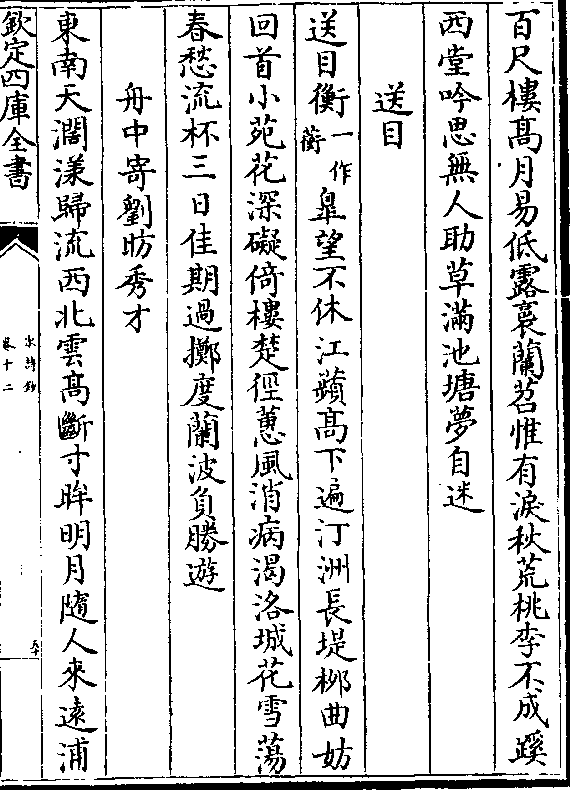 百尺樓髙月易低露裛蘭苕惟有淚秋荒桃李不成蹊
西堂吟思無人助草滿池塘夢自迷
送目
送目衡一作蘅臯望不休江蘋髙下遍汀洲長堤栁曲妨
回首小苑花深礙倚樓楚徑蕙風消病渇洛城花雪蕩
春愁流杯三日佳期過擲度蘭波負勝遊
舟中寄劉昉秀才
東南天濶漾歸流西北雲髙斷寸眸明月隨人來遠浦
欽定四庫全書
宋詩鈔
卷十二